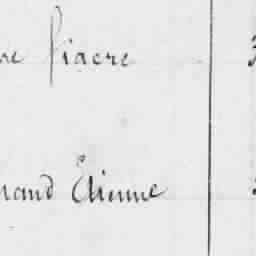 re fiacre 3
rand Etienne